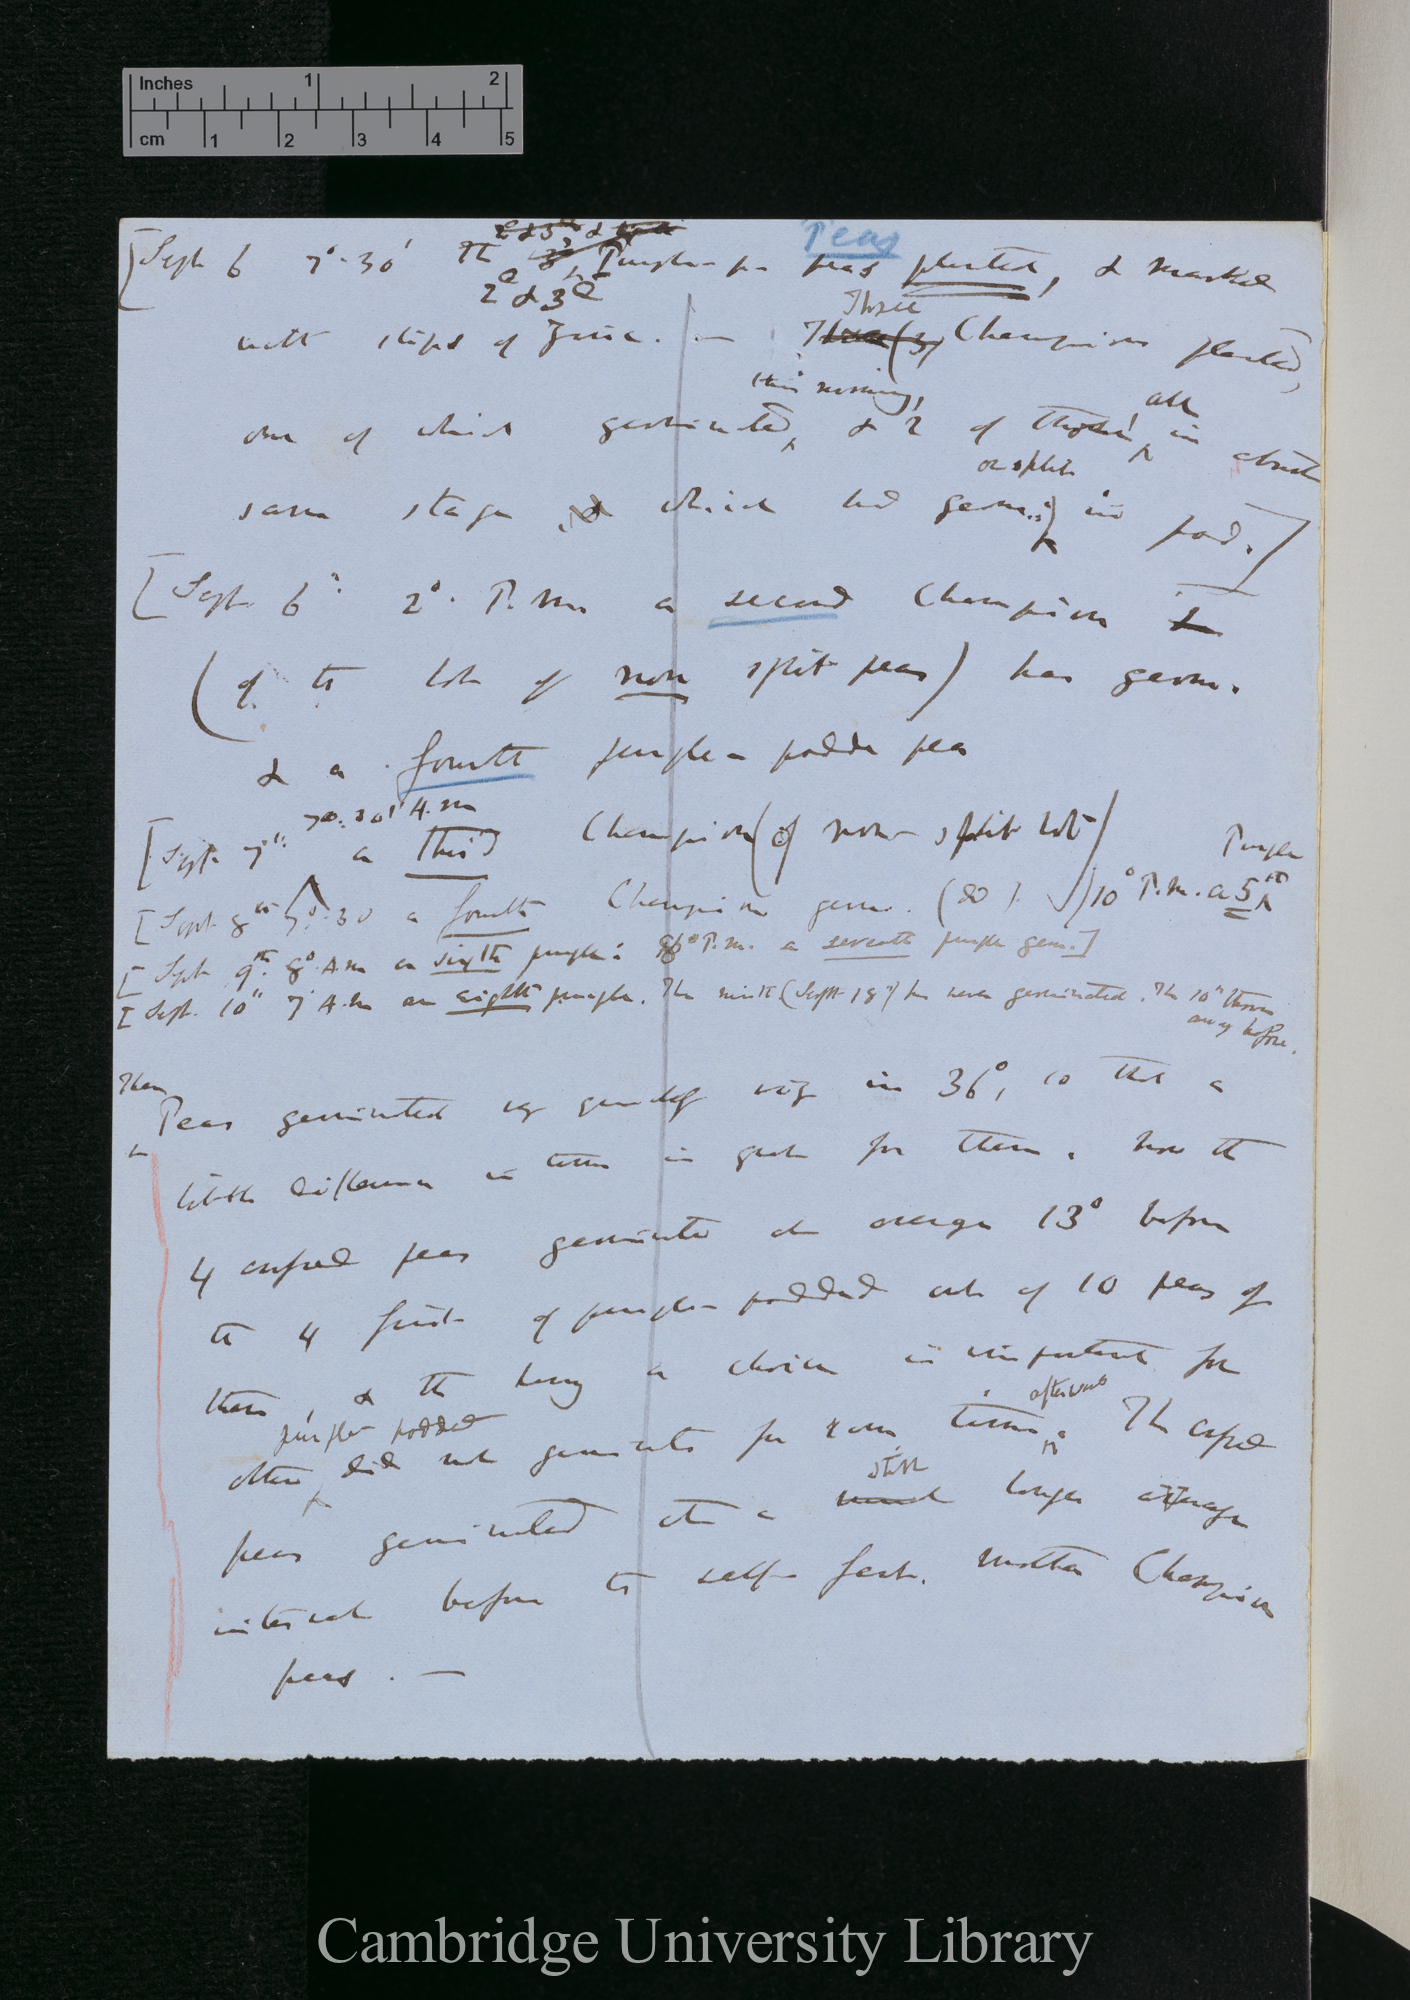 Inches 1 2
cm 1 2 3 4 5
Peas
[Sept 6 7°.30' The 2d & 3d Purple-p peas planted, & marked
with strips of Zinc. — Three Champions planted,
one of which germinated this morning, & 2 of all in about
same stage which had germ. or split in pod.]
[Sept. 6th 2°. P.M. a second Champion
(of the lot of non split peas) has germ.
& a fourth purple-podded pea
[Sept 7th. 7°.30' A.M a third Champion (of non-split lot)
[Sept 8th 7°.30 a fourth Champion germ. (do). 10° P.M. a 5th Purple
[Sept 9th. 8° A.M a sixth purple: 6° P.M. a seventh purple germ.]
[Sept. 10th 7° A.M an eighth purple. The ninth (Sept 18th) has never germinated. The 10th thrown
away before.
Peas germinated in 36°, so that a
little difference in time is great for them. Now the
4 crossed peas germinated on average 13° before
the 4 first of purple-podded out of 10 peas of
them, & the being a choice is important for
other purple podded did not germinate for some time afterwards. The crossed
peas germinated at a still longer average
interval before the self-fert. mother Champion
peas. —
Cambridge University Library